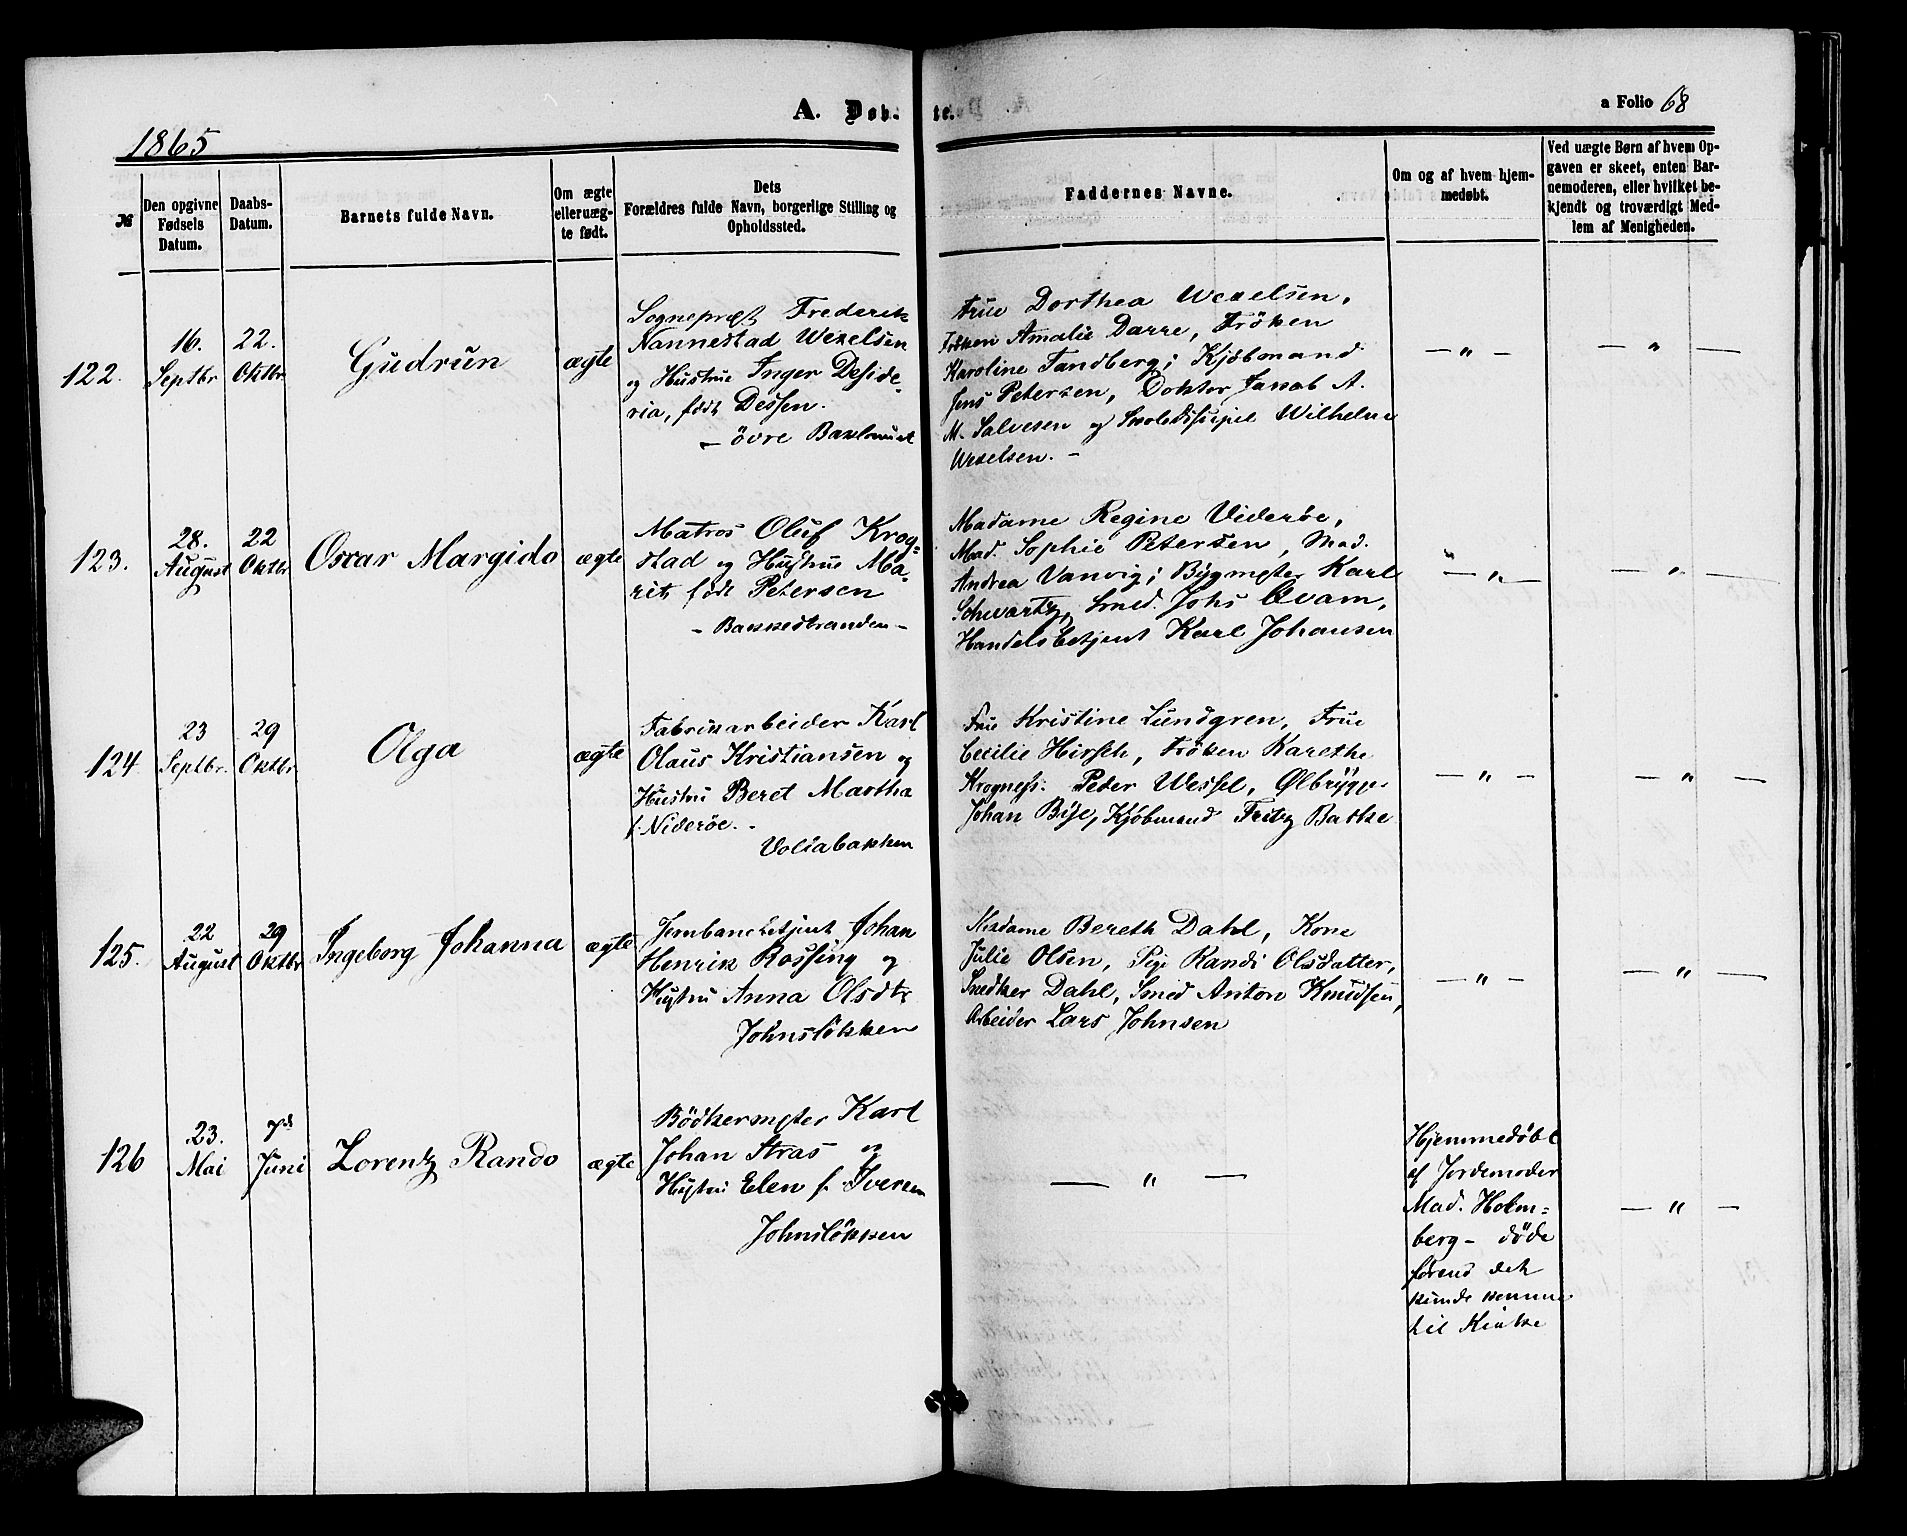 1865
A. Døb- te.
a Folio 68
№
Den opgivne Fødsels Datum.
Daabs-Datum.
Barnets fulde Navn.
Om ægte eller uæg-te født.
Dets Forældres fulde Navn, borgerlige Stilling og Opholdssted.
Faddernes Navne.
Om og af hvem hjem-medøbt.
Ved uægte Børn af hvem Op-gaven er skeet, enten Bar-nemoderen, eller hvilket be-kjendt og troværdigt Med-lem af Menigheden.
122.
16. Septbr
22. Oktbr
Gudrun
ægte
Sognepræst Frederik
Nannestad Wexelsen
og Hustrue Inger Deside-
ria, født Dessen.
- övre Baklandet
Frue Dorthea Wexelsen,
Fröken Amalie Darre, Fröken
Karoline Tandberg; Kjøbmand
Jens Petersen, Doktor Jakob A.
M. Salvesen og Skoledisipel Wilhelm
Wexelsen. -
— " —
— " —
123.
28. August
22 Oktbr
Oscar Margido
ægte
Matros Oluf Krog-
stad og Hustrue Ma-
rit född Petersen
- Bakkestranden -
Madame Regine Viderøe,
Mad. Sophie Petersen, Mad.
Andrea Vanvig; Bygmester Karl
Schvartz, Smed. Johs Qvam,
Handelsbetjent Karl Johansen
— " —
— " —
124
23 Septbr.
29 Oktbr
Olga
ægte
Fabrikarbeider Karl
Olaus Kristiansen og
Hustru Beret Martha
f. Niderøe. -
Voldabakken
Frue Kristine Lundgren, Frue
Cecilie Hirsch, Fröken Karethe
Krogness: Peder Wessel, Ølbrygger
Johan Bye, Kjøbmand Fritz Batke
— " —
— " —
125.
22 August
29 Oktbr
Ingeborg Johanna
ægte
Jernbanebetjent Johan
Henrik Rossing og
Hustru Anna Olsdtr
Johnsløkken
Madame Bereth Dahl, Kone
Julie Olsen, Pige Randi Olsdatter,
Snedker Dahl, Smed Anton Knudsen,
Arbeider Lars Johnsen
— " —
— " —
126
23. Mai
7d Juni
Lorentz Rando
ægte
Bödkermester Karl
Johan Stras og
Hustru Elen f. Iversen
Johnsløkken
— " —
Hjemmedöbt
af Jordemoder
Mad. Holm-
berg - döde
förend det
kunde komme
til Kirke
— " —